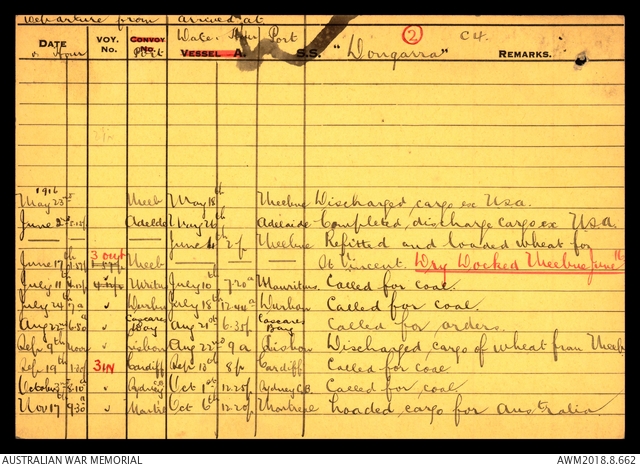 Departure from arrived at
Date Hour Port
DATE & Hour VOY. No. CONVOY No. Port VESSEL A. S.S. "Dongarra" ② C4. REMARKS.
1916
May 23rd Melb May 18th Melbne Discharged cargo ex Usa.
June 2nd Adelde May 26th Adelaide Completed, discharge cargo ex USA.
June 4th 2p Melbne Refitted and loaded wheat for
June 17th 3 out Melb St Vincent. Dry Docked Melbne June 16
July 11th July 10th 7-20a Mauritius Called for coal.
July 24th 7a Durban July 18th 12.44a Durban Called for coal.
Aug 22nd 6.50a Cascaes Bay Aug 21st 6.35p Cascaes Bay Called for orders.
Sep 9th noon Lisbon Aug 22nd 9a Lisbon Discharged cargo of wheat from Melb
Sep 19th 1.30p 3 IN Cardiff Sep 13th 8p Cardiff Called for coal
October 3rd 8.10a Sydney CB Oct 1st 12.25p Sydney C.B. Called for coal
Nov 17th 9.30a Oct 6th 12.20p Montreal Loaded cargo for Australia.
AUSTRALIAN WAR MEMORIAL AWM2018.8.662